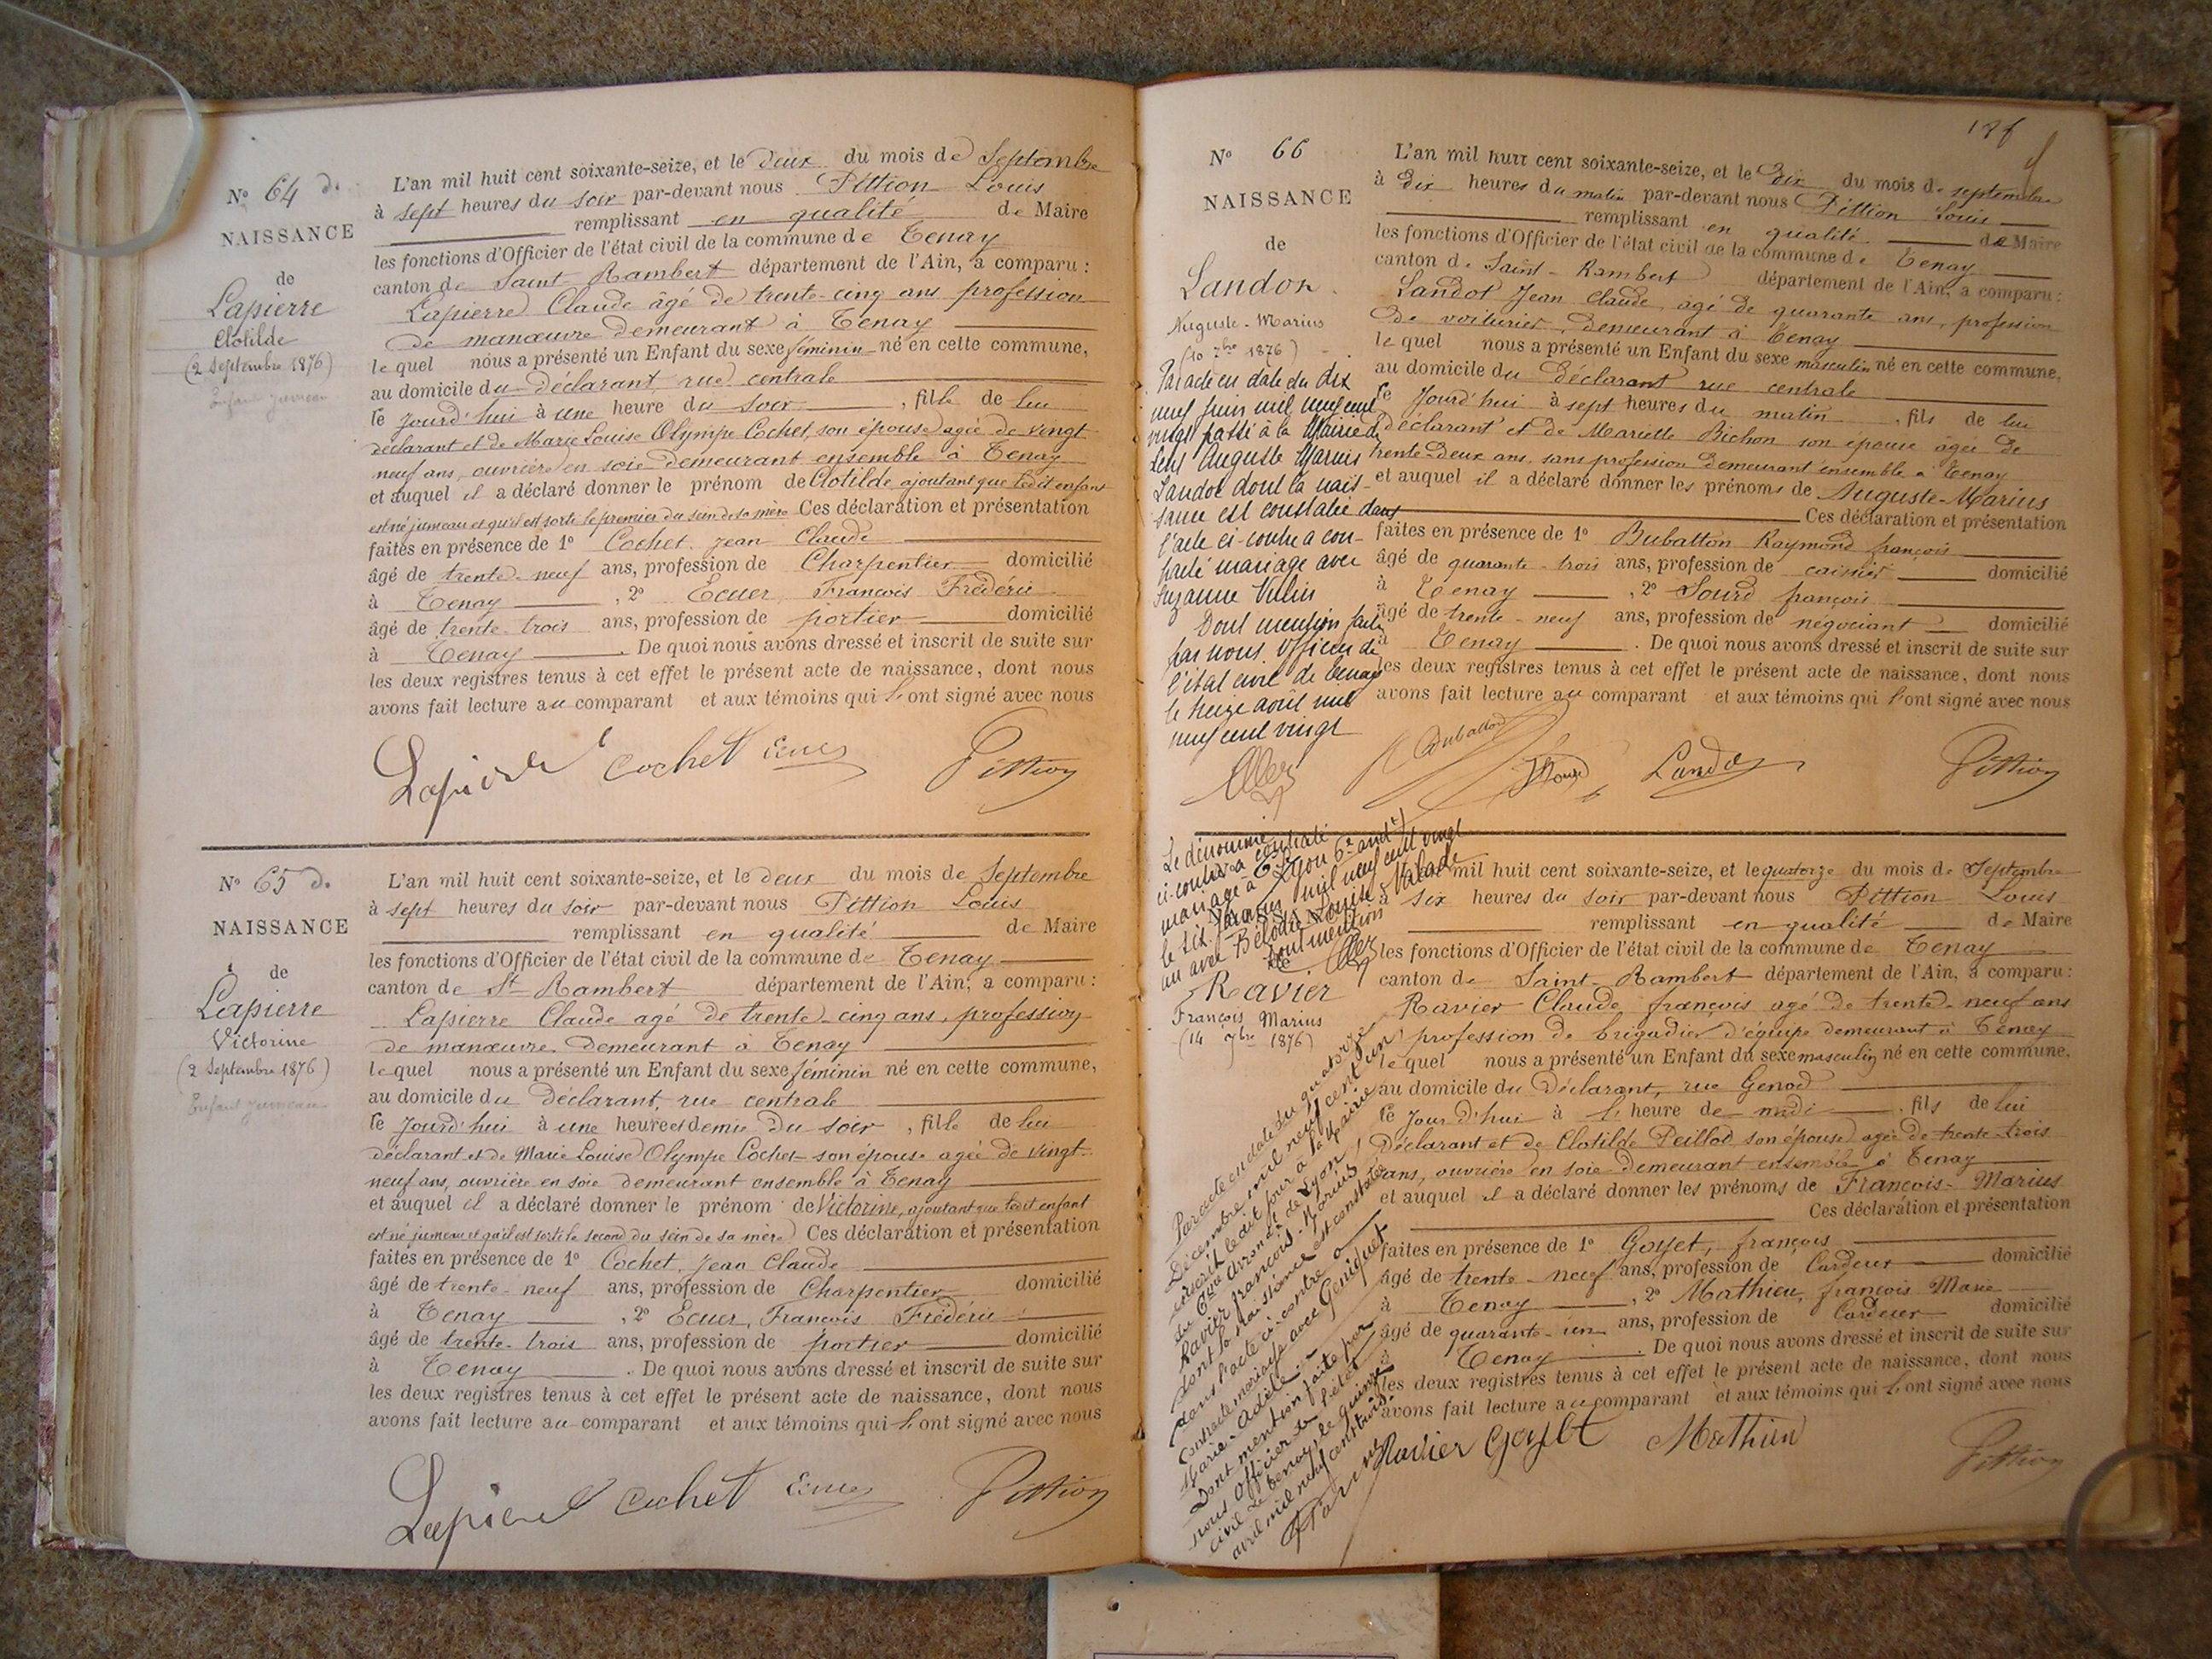 N° 64 d.
NAISSANCE
de
Lapierre
Clotilde
(2 Septembre 1876)
Enfant jumeau
L'an mil huit cent soixante-seize, et le deux du mois de Septembre
à sept heures du soir par-devant nous Pittion Louis
remplissant en qualité de Maire
les fonctions d'Officier de l'état civil de la commune de Tenay
canton de Saint-Rambert département de l'Ain, a comparu :
Lapierre Claude âgé de trente-cinq ans profession
de manœuvre demeurant à Tenay
lequel nous a présenté un Enfant du sexe féminin né en cette commune,
au domicile du déclarant rue centrale
le jourd'hui à une heure du soir, fille de lui
déclarant et de Marie Louise Olympe Cochet, son épouse agée de vingt
neuf ans, ouvrière en soie demeurant ensemble à Tenay
et auquel il a déclaré donner le prénom de Clotilde ajoutant que ledit enfant
est né jumeau et qu'il est sorti le premier du sein de sa mère Ces déclaration et présentation
faites en présence de 1° Cochet Jean Claude
âgé de trente-neuf ans, profession de Charpentier domicilié
à Tenay, 2° Ecuer, François Frédéric
âgé de trente-trois ans, profession de portier domicilié
à Tenay. De quoi nous avons dressé et inscrit de suite sur
les deux registres tenus à cet effet le présent acte de naissance, dont nous
avons fait lecture au comparant et aux témoins qui l'ont signé avec nous
Lapierre Cochet Ecuer Pittion
N° 65 d.
NAISSANCE
de
Lapierre
Victorine
(2 Septembre 1876)
Enfant jumeau
L'an mil huit cent soixante-seize, et le deux du mois de Septembre
à sept heures du soir par-devant nous Pittion Louis
remplissant en qualité de Maire
les fonctions d'Officier de l'état civil de la commune de Tenay
canton de St Rambert département de l'Ain, a comparu :
Lapierre Claude agé de trente-cinq ans, profession
de manœuvre demeurant à Tenay
lequel nous a présenté un Enfant du sexe féminin né en cette commune,
au domicile du déclarant, rue centrale
le jourd'hui à une heure et demie du soir, fille de lui
déclarant et de Marie Louise Olympe Cochet son épouse agée de vingt
neuf ans, ouvrière en soie demeurant ensemble à Tenay
et auquel il a déclaré donner le prénom de Victorine, ajoutant que ledit enfant
est né jumeau et qu'il est sorti le second du sein de sa mère Ces déclaration et présentation
faites en présence de 1° Cochet, Jean Claude
âgé de trente-neuf ans, profession de Charpentier domicilié
à Tenay, 2° Ecuer, François Frédéric
âgé de trente-trois ans, profession de portier domicilié
à Tenay. De quoi nous avons dressé et inscrit de suite sur
les deux registres tenus à cet effet le présent acte de naissance, dont nous
avons fait lecture au comparant et aux témoins qui l'ont signé avec nous
Lapierre Cochet Ecuer Pittion
N° 66
NAISSANCE
de
Landon
Auguste-Marius
(10 7bre 1876)
Par acte en date du dix
neuf juin mil neuf cent
vingt passé à la Mairie de
Lens Auguste Marius
Landot dont la nais-
sance est constatée dans
l'acte ci-contre a con-
tracté mariage avec
Suzanne Vulin
Dont mention faite
par nous Officier de
l'état civil de Tenay
le treize août mil
neuf cent vingt
L'an mil huit cent soixante-seize, et le dix du mois de septembre
à dix heures du matin par-devant nous Pittion Louis
remplissant en qualité de Maire
les fonctions d'Officier de l'état civil de la commune de Tenay
canton de Saint-Rambert département de l'Ain, a comparu :
Landot Jean Claude, agé de quarante ans, profession
de voiturier, demeurant à Tenay
lequel nous a présenté un Enfant du sexe masculin né en cette commune,
au domicile du déclarant rue centrale
le jourd'hui à sept heures du matin, fils de lui
déclarant et de Mariette Bichon son épouse âgée de
trente-deux ans, sans profession demeurant ensemble à Tenay
et auquel il a déclaré donner les prénoms de Auguste-Marius
Ces déclaration et présentation
faites en présence de 1° Dubatton Raymond françois
âgé de quarante-trois ans, profession de caissier domicilié
à Tenay, 2° Sourd françois
âgé de trente-neuf ans, profession de négociant domicilié
à Tenay. De quoi nous avons dressé et inscrit de suite sur
les deux registres tenus à cet effet le présent acte de naissance, dont nous
avons fait lecture au comparant et aux témoins qui l'ont signé avec nous
Dubatton Sourd Landot Pittion
Le dénommé
ci-contre a contracté
mariage à Lyon 6e arrdt)
mil neuf cent vingt
un avec Louise
dont mention
Ravier
François Marius
(14 7bre 1876)
Par acte en date du quatorze
Décembre mil neuf cent un
transcrit le dit jour à la Mairie
du arrondt de Lyon,
Ravier François-Marius
dont la naissance est constatée
dans l'acte ci-contre a
contracté mariage avec
Marie-Adèle
Dont mention faite par
nous Officier de l'état
civil de Tenay, le quinze
avril mil neuf cent trois.
L'an mil huit cent soixante-seize, et le quatorze du mois de Septembre
à six heures du soir par-devant nous Pittion Louis
remplissant en qualité de Maire
les fonctions d'Officier de l'état civil de la commune de Tenay
canton de Saint-Rambert département de l'Ain, a comparu :
Ravier Claude françois agé de trente-neuf ans
profession de brigadier d'équipe demeurant à Tenay
lequel nous a présenté un Enfant du sexe masculin né en cette commune,
au domicile du déclarant, rue Genod
le jourd'hui à l'heure de midi, fils de lui
Déclarant et de Clotilde Peillod son épouse agée de trente-trois
ans, ouvrière en soie demeurant ensemble à Tenay
et auquel il a déclaré donner les prénoms de François-Marius
Ces déclaration et présentation
faites en présence de 1° Goyet, françois
âgé de trente-neuf ans, profession de Cardeur domicilié
à Tenay, 2° Mathieu, françois Marie
âgé de quarante-un ans, profession de Cardeur domicilié
à Tenay. De quoi nous avons dressé et inscrit de suite sur
les deux registres tenus à cet effet le présent acte de naissance, dont nous
avons fait lecture au comparant et aux témoins qui l'ont signé avec nous
Ravier Goyet Mathieu Pittion